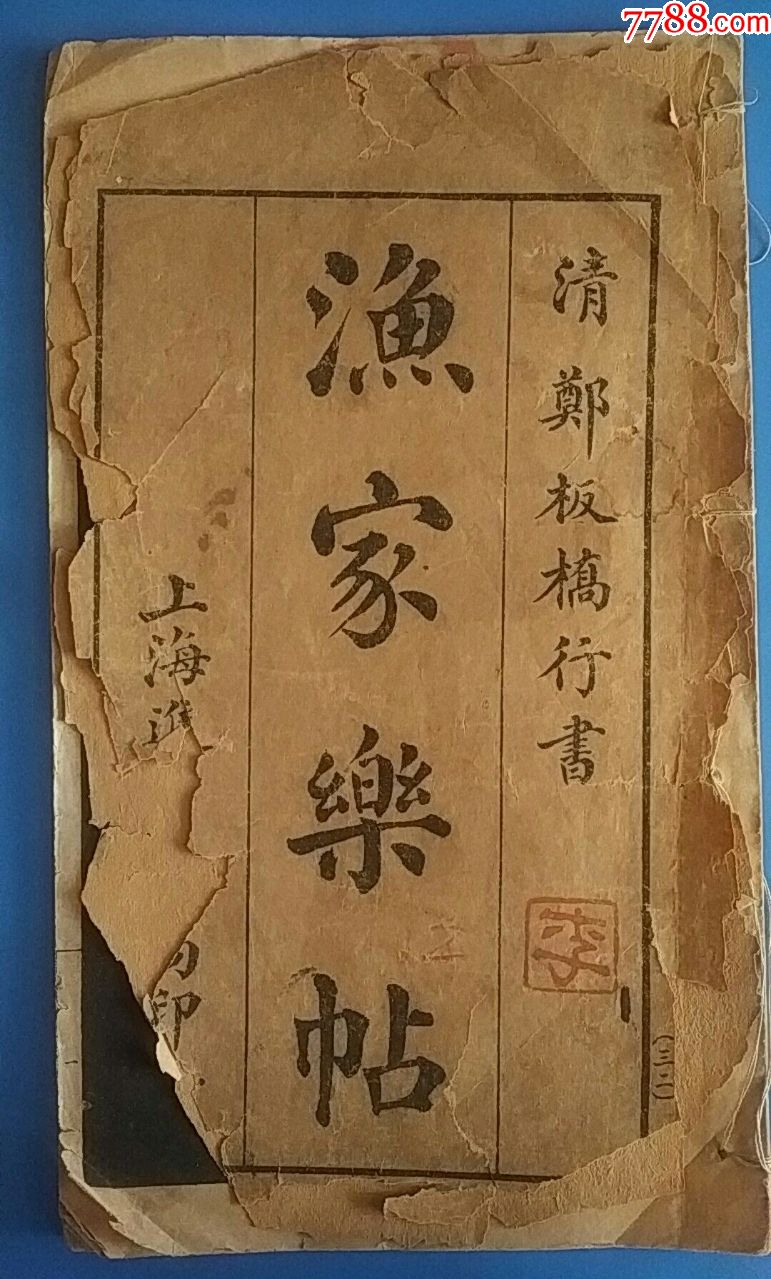 7788.com
清鄭板橋行書
漁家樂帖
上海進
印
李
(三二)